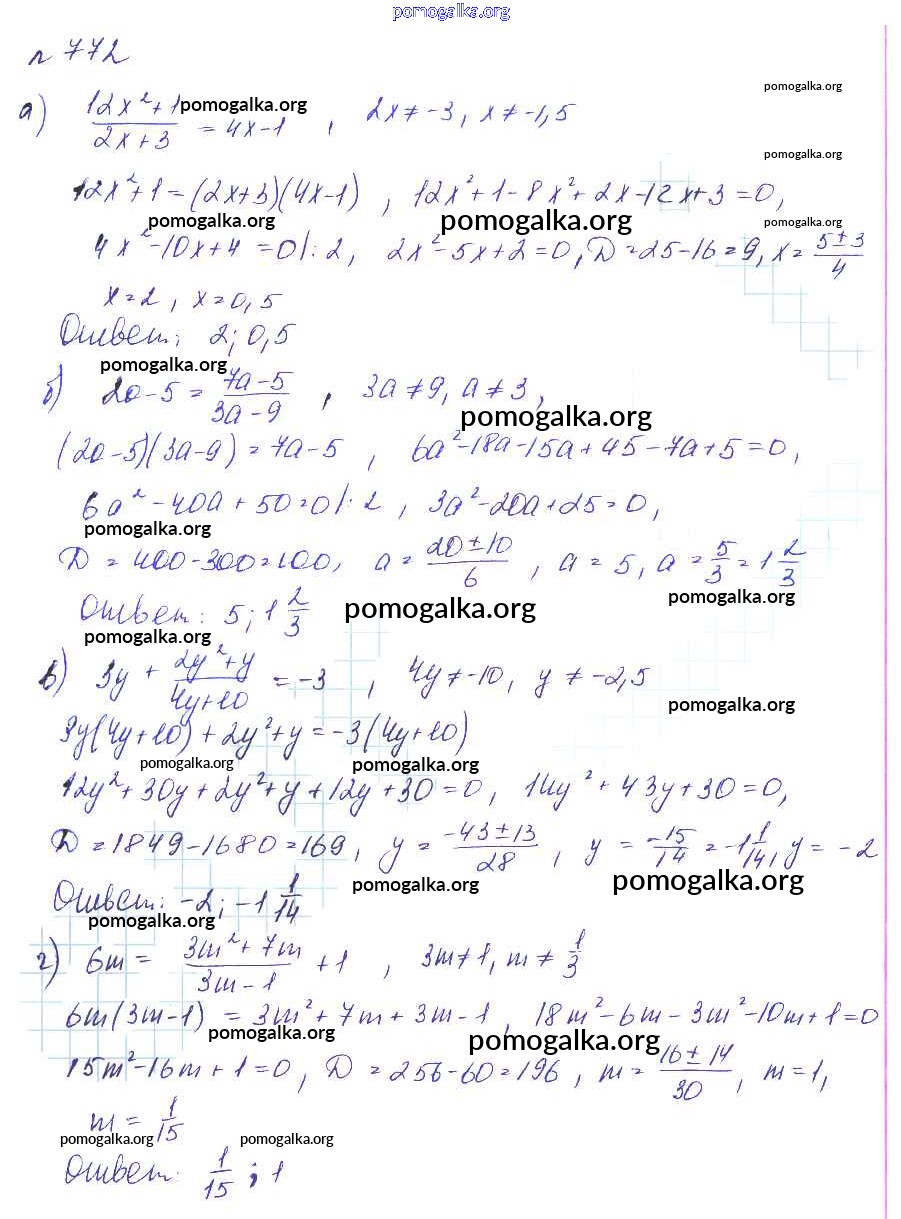 pomogalka.org
n 772
а) (12x²+1)/(2x+3) = 4x-1 , 2x≠-3, x≠-1,5
pomogalka.org pomogalka.org
pomogalka.org
12x²+1=(2x+3)(4x-1) , 12x²+1-8x²+2x-12x+3=0,
pomogalka.org pomogalka.org pomogalka.org
4x²-10x+4=0|:2, 2x²-5x+2=0, D=25-16=9, x=(5±3)/4
x=2, x=0,5
Ответ: 2; 0,5
pomogalka.org
б) 2a-5=(7a-5)/(3a-9) , 3a≠9, a≠3,
pomogalka.org
(2a-5)(3a-9)=7a-5 , 6a²-18a-15a+45-7a+5=0,
6a²-40a+50=0|:2 , 3a²-20a+25=0,
pomogalka.org
D=400-300=100, a=(20±10)/6 , a=5, a=5/3=1 2/3
pomogalka.org
Ответ: 5; 1 2/3
pomogalka.org
pomogalka.org
в) 3y+(2y²+y)/(4y+10)=-3 , 4y≠-10, y≠-2,5
pomogalka.org
3y(4y+10)+2y²+y=-3(4y+10)
pomogalka.org pomogalka.org
12y²+30y+2y²+y+12y+30=0, 14y²+43y+30=0,
D=1849-1680=169, y=(-43±13)/28 , y=-15/14=-1 1/14, y=-2
pomogalka.org pomogalka.org
Ответ: -2; -1 1/14
pomogalka.org
г) 6m=(3m²+7m)/(3m-1)+1 , 3m≠1, m≠1/3
6m(3m-1)=3m²+7m+3m-1, 18m²-6m-3m²-10m+1=0
pomogalka.org pomogalka.org
15m²-16m+1=0, D=256-60=196, m=(16±14)/30, m=1,
m=1/15
pomogalka.org pomogalka.org
Ответ: 1/15; 1